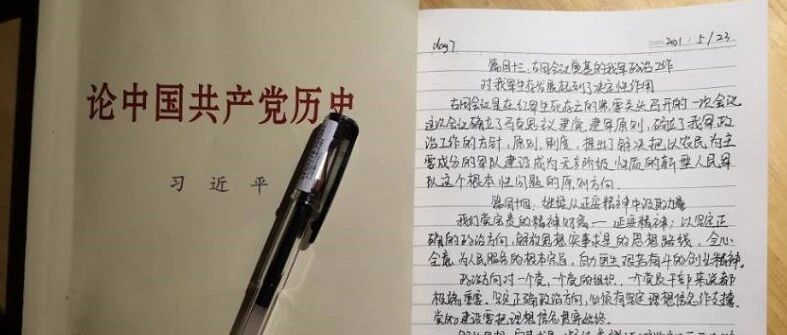 论中国共产党历史
习近平
day7
2021 5/23
篇目十三、古田会议奠基的我军政治工作
对我军生存发展起到了决定性作用
古田会议是在红军生死存亡的紧要关头召开的一次会议。
这次会议确立了马克思主义建党建军原则,确立了我军政
治工作的方针,原则,制度,提出了解决把以农民为主
要成分的军队建设成为无产阶级性质的新型人民军
队这个根本性问题的原则方向。
篇目十四、继续从延安精神中汲取力量
我们党宝贵的精神财富——延安精神:以坚定正
确的政治方向,解放思想实事求是的思想路线,全心
全意为人民服务的根本宗旨,自力更生艰苦奋斗的创业精神。
政治方向对一个党、一个党的组织、一个党员干部来说都
极端重要。坚定正确政治方向,必须有坚定理想信念作支撑。
党的建设要把理想信念贯穿始终。